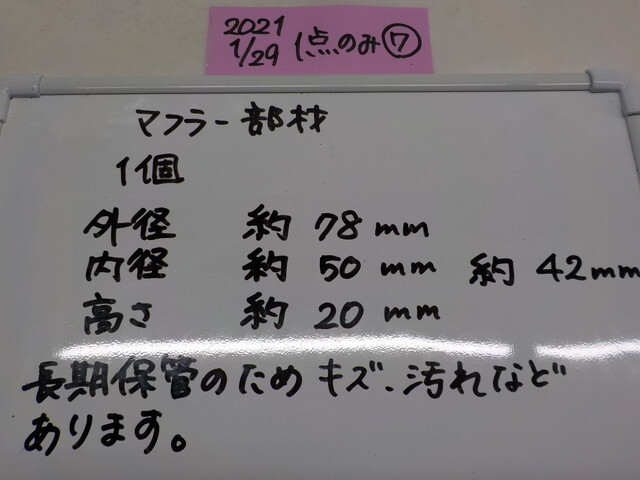 2021
1/29 1点のみ⑦
マフラー部材
1個
外径 約 78mm
内径 約 50mm 約 42mm
高さ 約 20mm
長期保管のためキズ、汚れなど
あります。